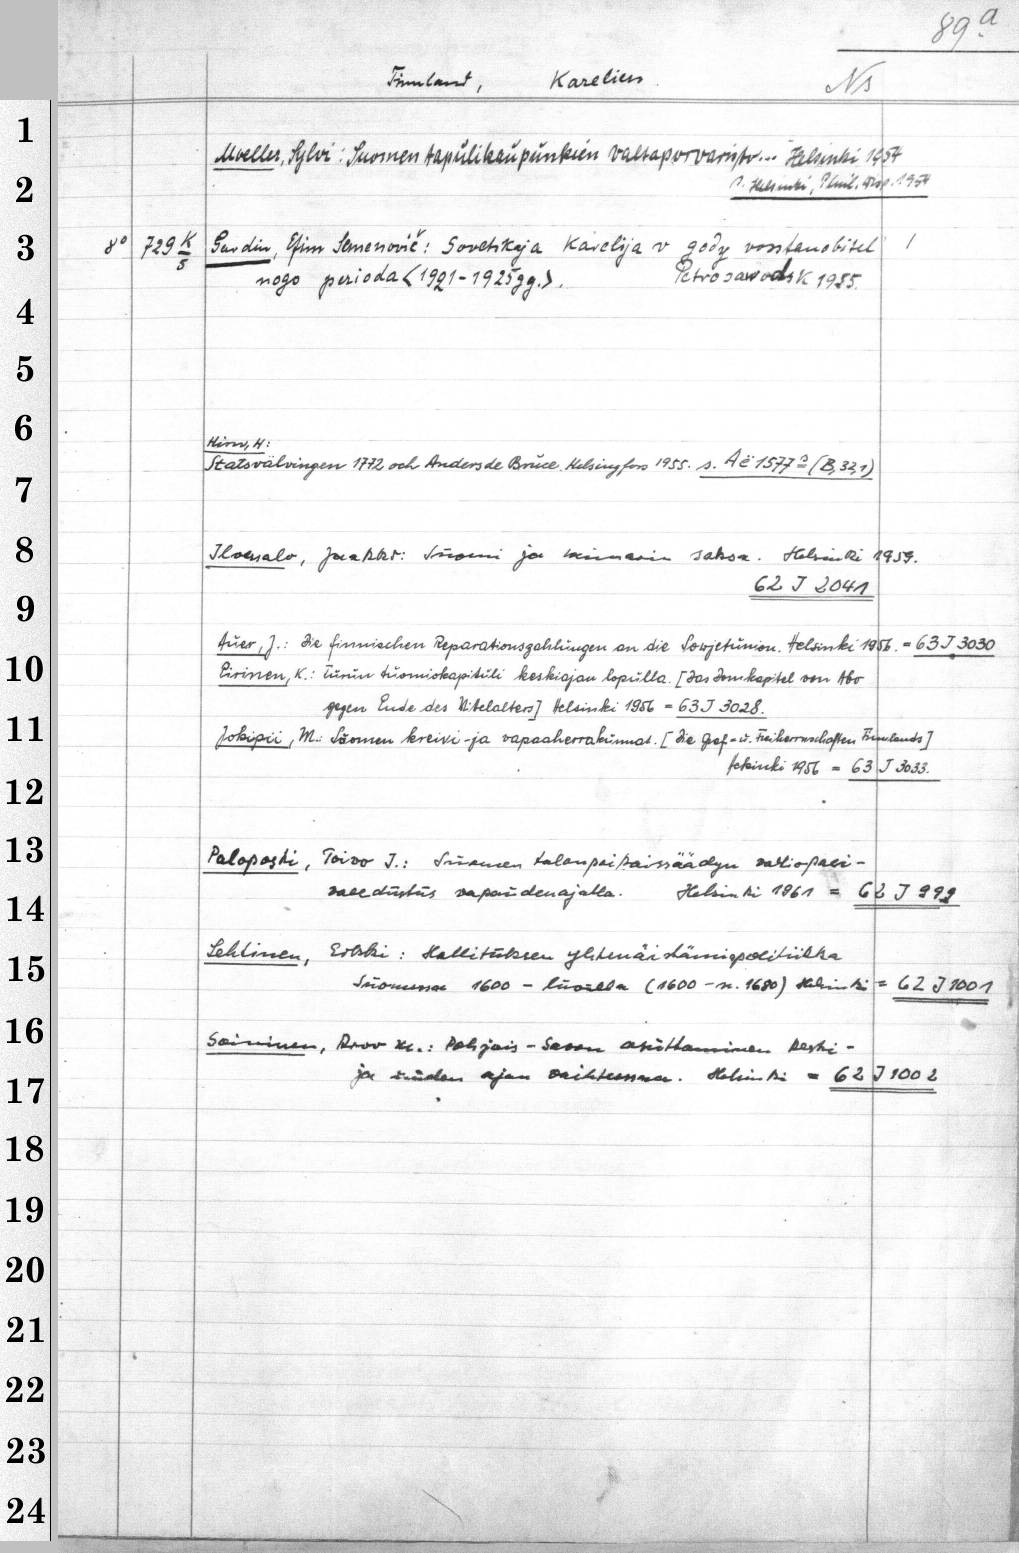 89 a
Finnland, Karelien. Ns
1
Moeller, Sylvi: Suomen tapulikaupunkien valtaporvaristo... Helsinki 1954
2
s. Helsinki, Phil. Diss. 1954
3
8° 729 K/5 Gardin, Efim Semenovič: Sovetskaja Karelija v gody vosstanobitel 1
nogo perioda <1921-1925gg.>. Petrosawodsk 1955.
4
5
6
Hirn, H:
Statsvälvingen 1772 och Anders de Bruce. Helsingfors 1955. s. Aë 1577 a = (B, 32,1)
7
8
Ilvessalo, Jaakko: Suomi ja weimarin saksa. Helsinki 1959.
62 J 2041
9
Auer, J.: Die finnischen Reparationszahlungen an die Sowjetunion. Helsinki 1956. = 63 J 3030
10
Pirinen, K.: Turun tuomiokapituli keskiajan lopulla. [Das Domkapitel von Abo
gegen Ende des Mitelalters] Helsinki 1956 = 63 J 3028.
11
Jokipii, M.: Suomen kreivi- ja vapaaherrakunnat. [Die Graf- u. Freiherrnschaften Finnlands]
Helsinki 1956 = 63 J 3033.
12
13
Paloposki, Toivo J.: Suomen talonpoikaissäädyn valtiopäi-
vaedustus vapaudenajalla. Helsinki 1961 = 62 J 999
14
Lehtinen, Erkki: Hallituksen yhtenäistämispolitiikka
15
Suomessa 1600-luvulla (1600-n. 1680) Helsinki = 62 J 1001
16
Soininen, Arvo M.: Pohjois-Savon asuttaminen keski-
ja uuden ajan vaihteessa. Helsinki = 62 J 1002
17
18
19
20
21
22
23
24